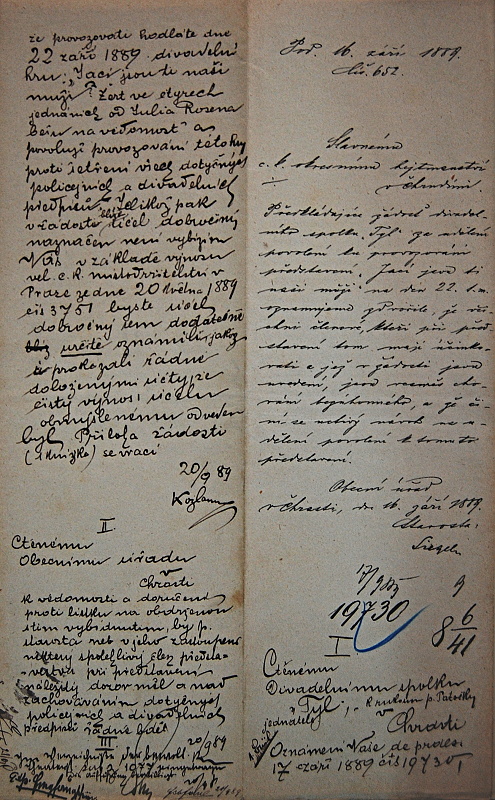 že provozovati hodláte dne
22 září 1889 divadelní
hru: „Jací jsou ti naši
muži" Žert ve čtyrech
jednáních od Julia Rosena
beru na vědomost a
povoluji provozování této hry
proti šetření všech dotyčných
policejních a divadelních
předpisů. Jelikož pak
v žádosti účel dobročinný
naznačen není vybízím
Vás v základě výnosu
vel. c. k. místodržitelství v
Praze ze dne 20 května 1889
čís 3751 byste účel
dobročinný sem dodatečně
určitě oznámili, jakož
i prokázali řádně
doloženými účty, že
čistý výnos účelu
obmyšlenému odveden
byl. Příloha žádosti
(1 knížka) se vrací
20/9 89
Kozlansky
II
Ctěnému
Obecnímu úřadu
v
Chrasti
k vědomosti a doručení
proti lístku na obdrženou
s tím vybídnutím, by p.
starosta neb v jeho zastoupení
některý spolehlivý člen představenstva
při představení
náležitý dozor měl a nad
zachováváním dotyčných
policejních a divadelních
předpisů řádně bděl
20/9 89
III
Pod. 16. září 1889.
Čís. 652.
Slavnému
c. k. okresnímu hejtmanství
v Chrudimi.
Předkládajíce žádost divadelního
spolku „Tyl" za udělení
povolení ku provozování
představení „Jací jsou ti
naši muži" na den 22. t. m.
oznamujeme zdvořile, že všichni
členové, kteří při představení
tom mají účinkovati
a jež v žádosti jsou
uvedeni, jsou vesměs chování
bezúhonného, a že činí
se nebrati nárok na udělení
povolení k tomuto
představení.
Obecní úřad
v Chrasti, dne 16. září 1889.
Starosta:
Siegel
17/9 89
19730
9
8 6/41
I
Ctěnému
Divadelnímu spolku
„Tyl", k rukoum p.
jednatele
v Chrasti
Oznámení Vaše de praes.
17 září 1889 čís 19730,